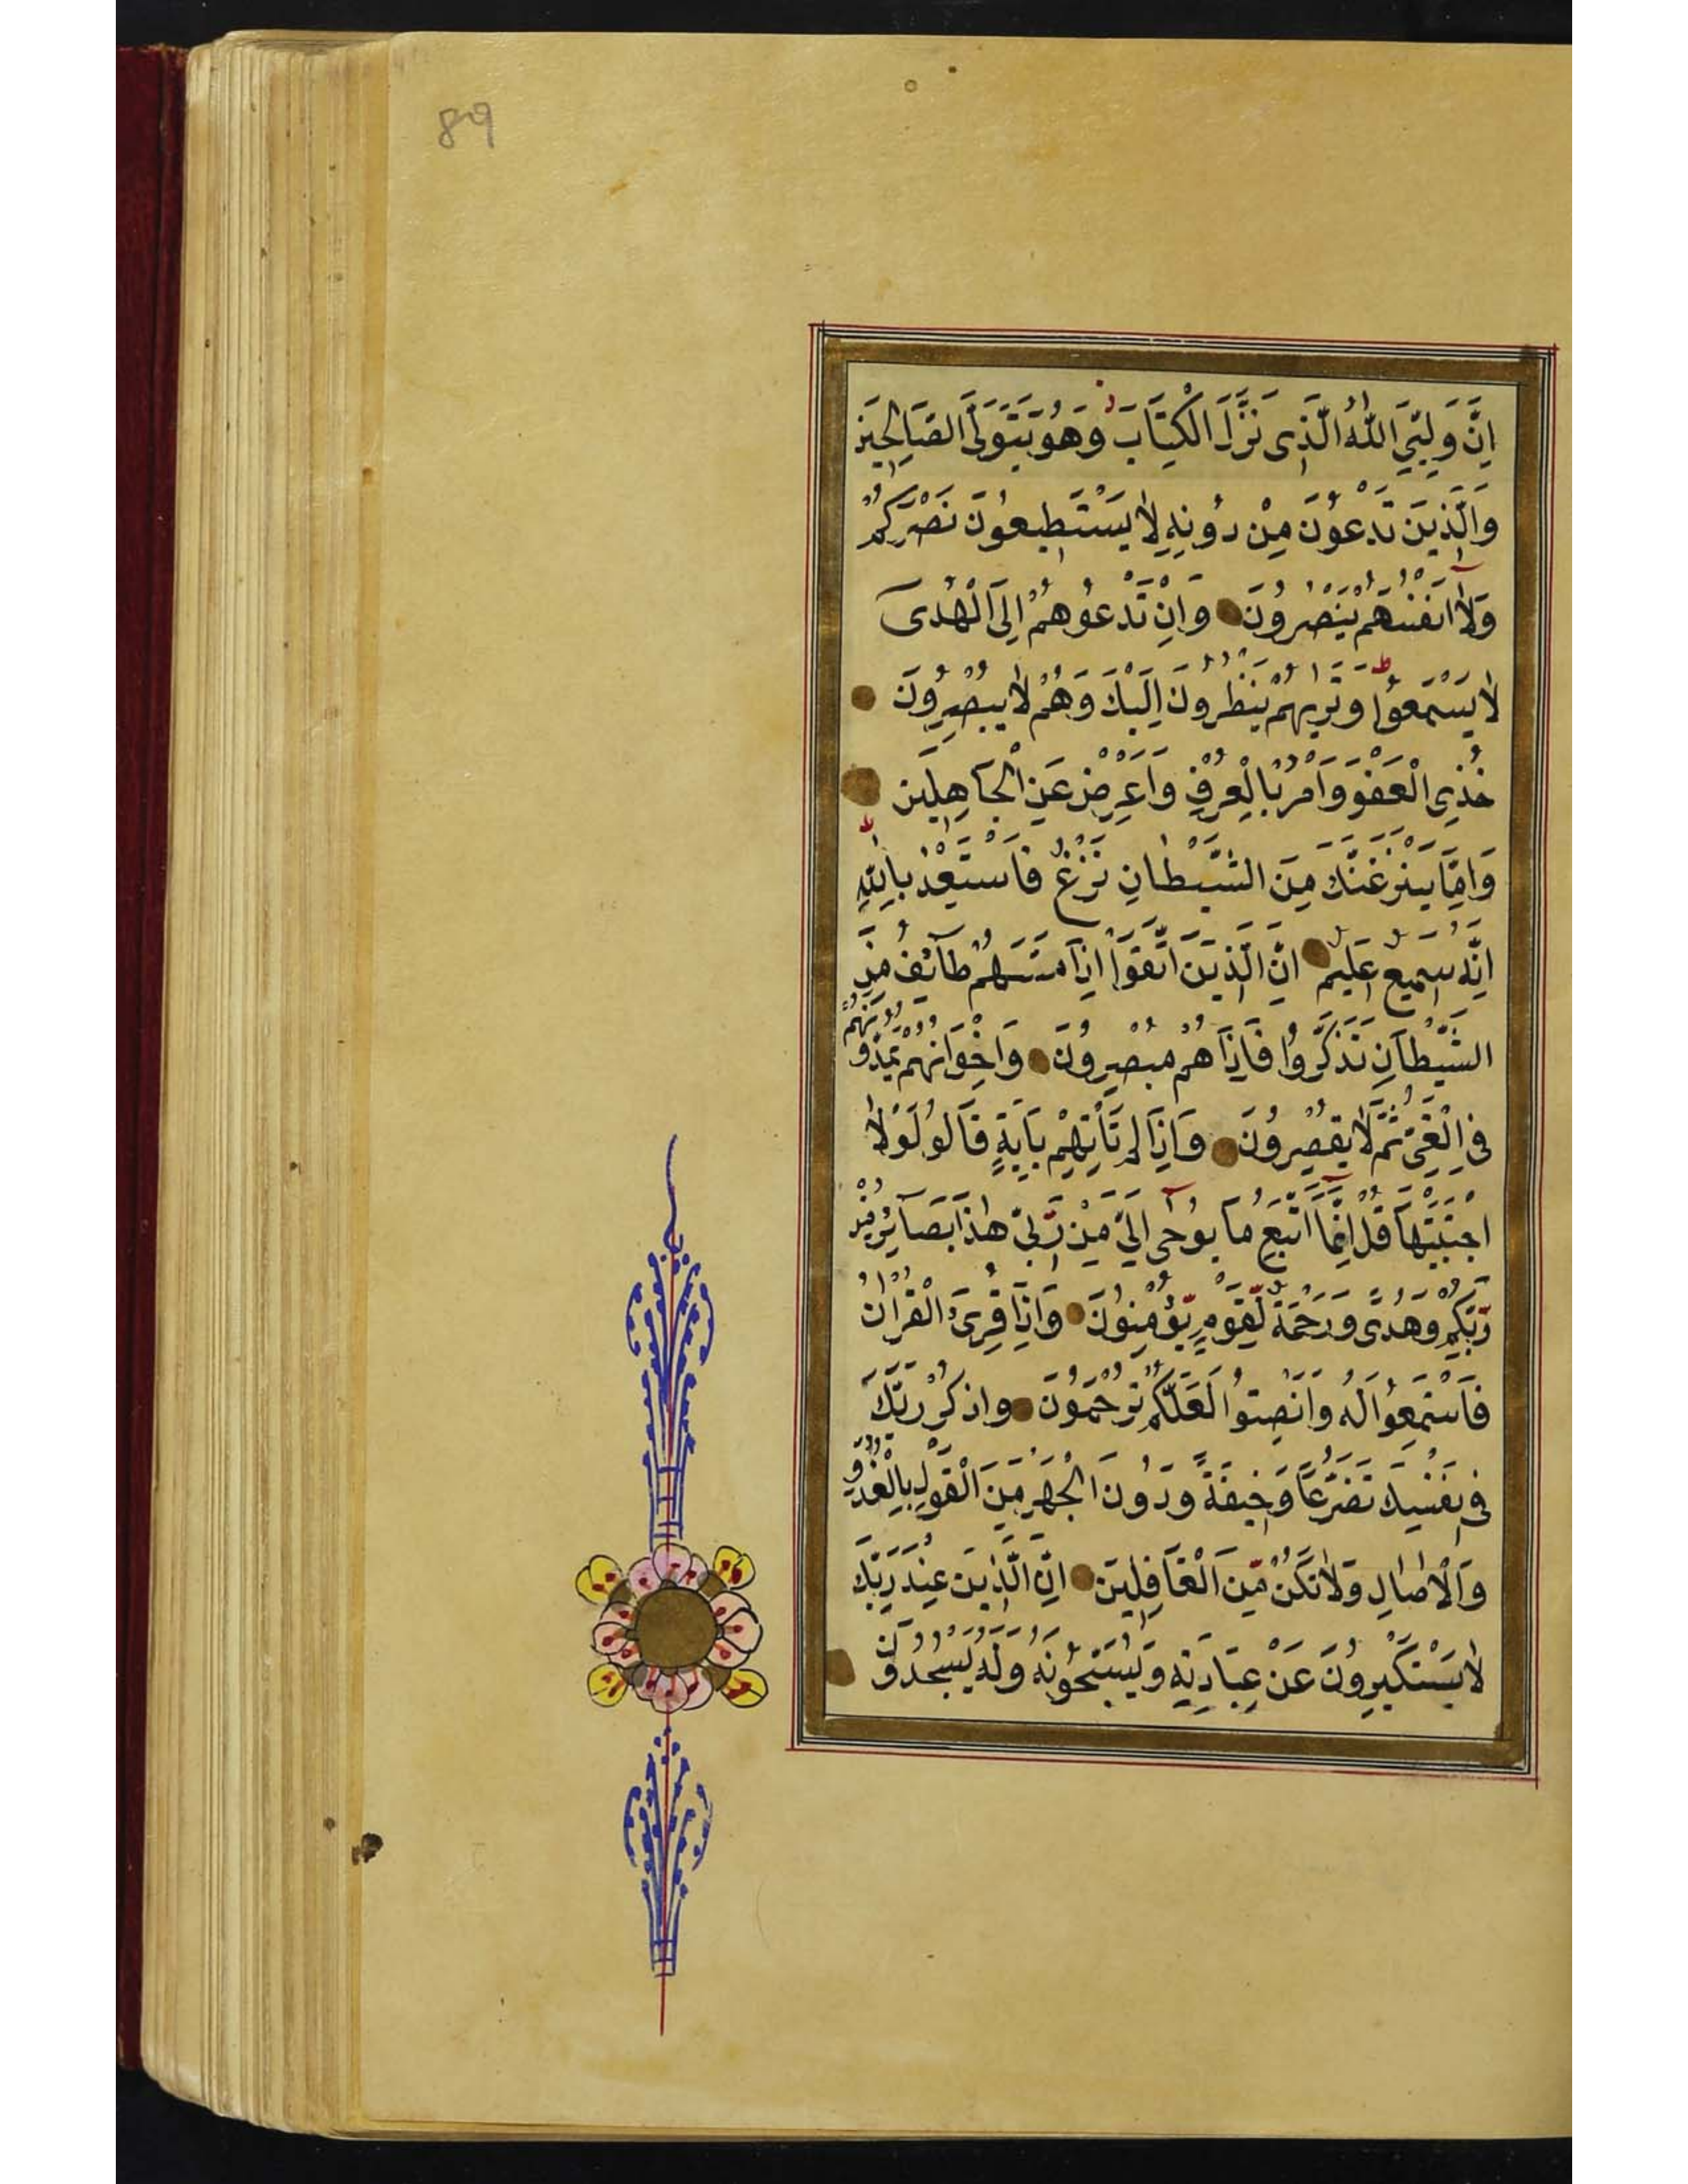 89
اِنَّ وَلِيِّيَ اللّٰهُ الَّذِى نَزَّلَ الْكِتَابَ وَهُوَ يَتَوَلَّى الصَّالِحِينَ
وَالَّذِينَ تَدْعُونَ مِنْ دُونِهِ لَا يَسْتَطِيعُونَ نَصْرَكُمْ
وَلَآ اَنْفُسَهُمْ يَنْصُرُونَ وَاِنْ تَدْعُوهُمْ اِلَى الْهُدٰى
لَا يَسْمَعُوا وَتَرٰيهُمْ يَنْظُرُونَ اِلَيْكَ وَهُمْ لَا يُبْصِرُونَ
خُذِ الْعَفْوَ وَاْمُرْ بِالْعُرْفِ وَاَعْرِضْ عَنِ الْجَاهِلِينَ
وَاِمَّا يَنْزَغَنَّكَ مِنَ الشَّيْطَانِ نَزْغٌ فَاسْتَعِذْ بِاللّٰهِ
اِنَّهُ سَمِيعٌ عَلِيمٌ اِنَّ الَّذِينَ اتَّقَوْا اِذَا مَسَّهُمْ طَآئِفٌ مِنَ
الشَّيْطَانِ تَذَكَّرُوا فَاِذَا هُمْ مُبْصِرُونَ وَاِخْوَانُهُمْ يَمُدُّونَهُمْ
فِى الْغَىِّ ثُمَّ لَا يُقْصِرُونَ وَاِذَا لَمْ تَأْتِهِمْ بِآيَةٍ قَالُوا لَوْلَا
اجْتَبَيْتَهَا قُلْ اِنَّمَآ اَتَّبِعُ مَا يُوحٰىٓ اِلَىَّ مِنْ رَبِّى هٰذَا بَصَآئِرُ مِنْ
رَبِّكُمْ وَهُدًى وَرَحْمَةٌ لِّقَوْمٍ يُّؤْمِنُونَ وَاِذَا قُرِئَ الْقُرْاٰنُ
فَاسْتَمِعُوا لَهُ وَاَنْصِتُوا لَعَلَّكُمْ تُرْحَمُونَ وَاذْكُرْ رَبَّكَ
فِى نَفْسِكَ تَضَرُّعًا وَخِيفَةً وَدُونَ الْجَهْرِ مِنَ الْقَوْلِ بِالْغُدُوِّ
وَالْاٰصَالِ وَلَا تَكُنْ مِّنَ الْغَافِلِينَ اِنَّ الَّذِينَ عِنْدَ رَبِّكَ
لَا يَسْتَكْبِرُونَ عَنْ عِبَادَتِهِ وَيُسَبِّحُونَهُ وَلَهُ يَسْجُدُونَ